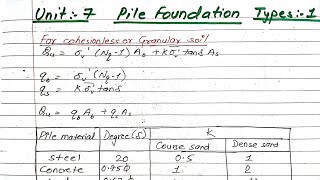 Unit:- 7 Pile Foundation Types:-1
For cohesionless or Granular soil
Qu = σv' (Nq-1) Ab + kσv' tanδ As
qb = σv' (Nq-1)
qs = kσv' tanδ
Qu = qb Ab + qs As
Pile material Degree(δ) K
Course sand Dense sand
steel 20 0.5 1
Concrete 0.75Φ 1 2